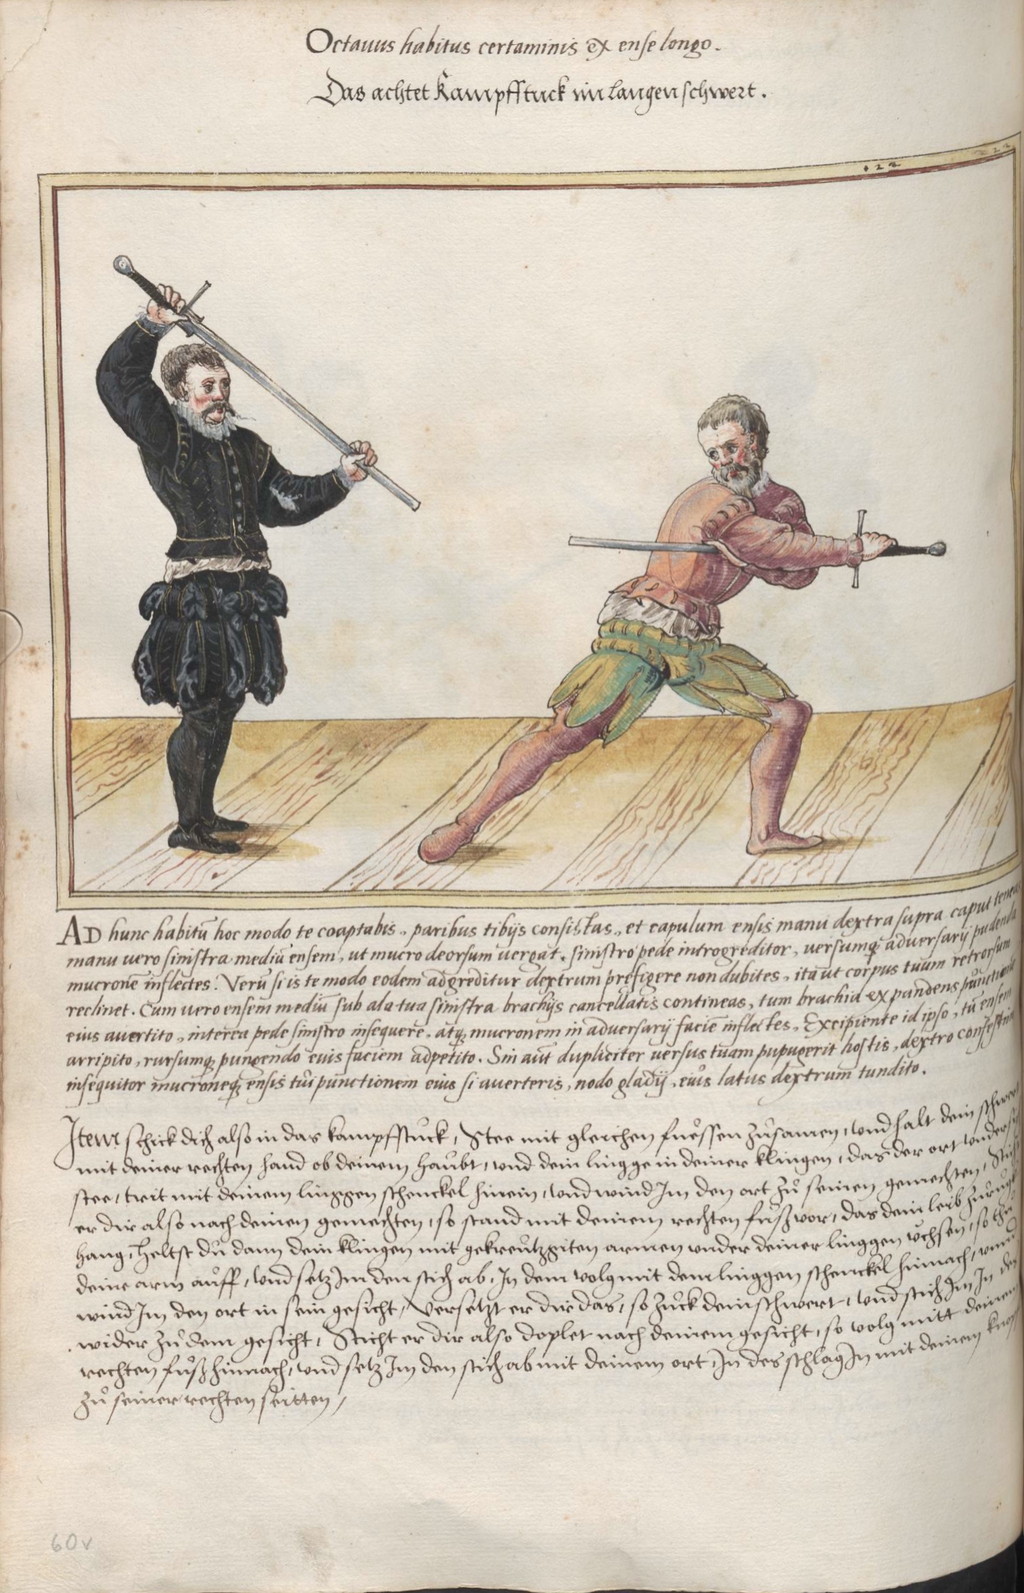 Octauus habitus certaminis ex ense longo.
Das achtet Kampffstuck im langen schwert.
AD hunc habitũ hoc modo te coaptabis, paribus tibijs consistas, et capulum ensis manu dextra supra caput teneas
manu uero sinistra mediũ ensem, ut mucro deorsum uergat, sinistro pede introgreditor, versumq; aduersarij pudenda
mucronẽ inflectes. Verũ si is te modo eodem adgreditur dextrum prefigere non dubites, ita ut corpus tuum retrorsum
reclinet. Cum uero ensem mediũ sub ala tua sinistra brachijs cancellatis contineas, tum brachia expandens punctionem
eius auertito, interea pede sinistro insequere, atq; mucronem in aduersarij faciẽ inflectes. Excipiente id ipso, tu ensem
arripito, rursumq; pungendo euis faciem adpetito. Sin aũt dupliciter versus tuam pupugerit hostis, dextro confestim
insequitor mucroneq; ensis tui punctionem eius si auerteris, nodo gladij, eius latus dextrum tundito.
Item schick dich also in das kampffstuck, Stee mit gleichen fuessen zusamen, vnd halt dein schwert
mit deiner rechten hand ob deinem haubt, vnd dein lingge in deiner klingen, das der ort vndersich
stee, trit mit deinem linggen schenckel hinein, vnd wind Im den ort zu seinen gemechten, Sticht
er dir also nach deinen gemechten, so stand mit deinem rechten fuß vor, das dein leib zurugk
hang, Heltst du dann dein klingen mit gekreutzgiten armen vnder deiner linggen vchsen, so
deine arm auff, vnd setz Im den stich ab, In dem volg mit dem linggen schenckel hinnach, vnnd
wind Im den ort in sein gesicht, Versetzt er dir das, so zuck dein schwert, vnd stich Im In dem
wider zu dem gesicht, Sticht er dir also doplet nach deinem gesicht, so volg mitt deinem
rechten fuß hinnach, vnd setz Im den stich ab mit deinem ort, In des schlag In mit deinem knopff
zu seiner rechten seitten,
60v